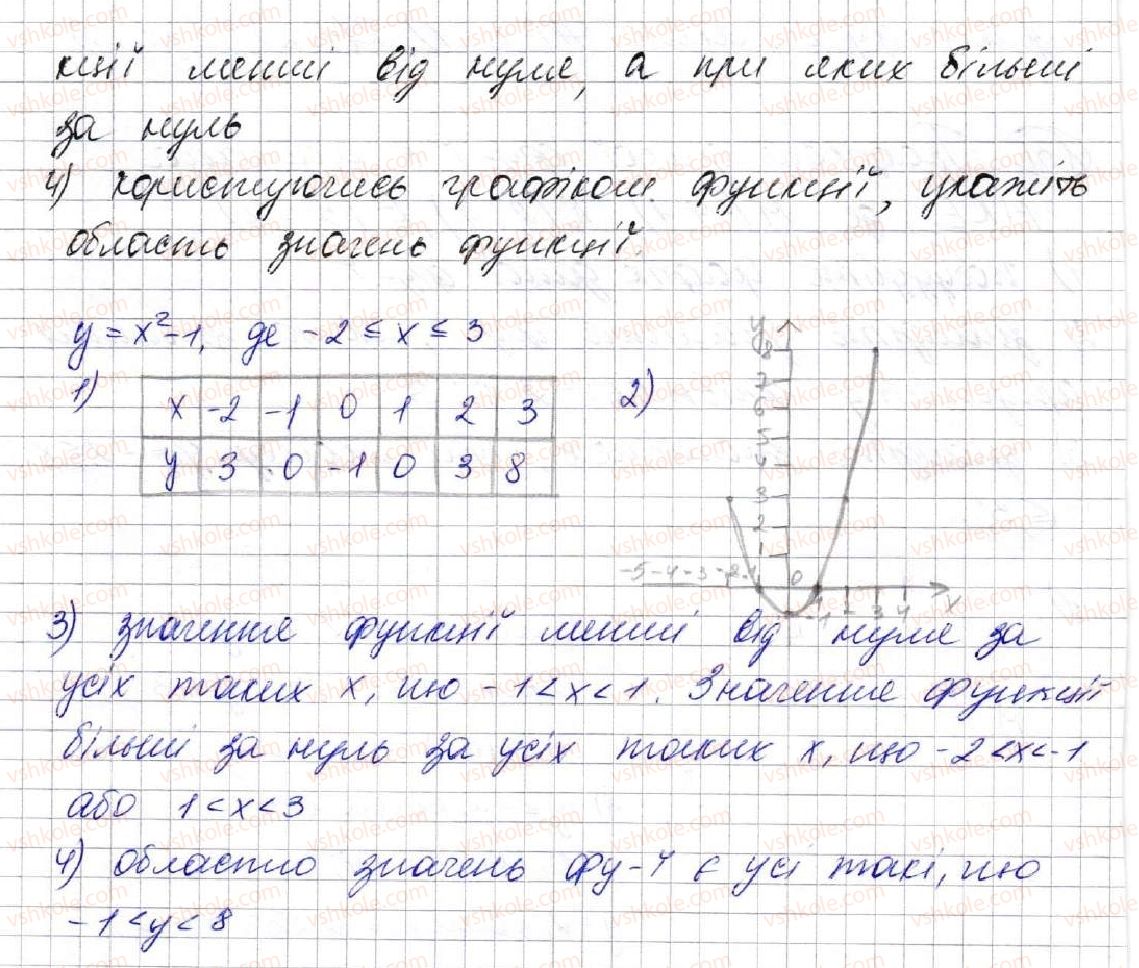 кції менші від нуля, а при яких більші
за нуль
4) користуючись графіком функції, укажіть
область значень функції.
y = x² - 1, де -2 ≤ x ≤ 3
1)
x -2 -1 0 1 2 3
y 3 0 -1 0 3 8
2)
y
8
7
6
5
4
3
2
1
-5 -4 -3 -2 -1 0 1 2 3 4 x
-1
3) значення функції менші від нуля за
усіх таких x, що -1 < x < 1. Значення функції
більші за нуль за усіх таких x, що -2 < x < -1
або 1 < x < 3
4) областю значень фу-ї є усі такі, що
-1 < y < 8
vshkole.com